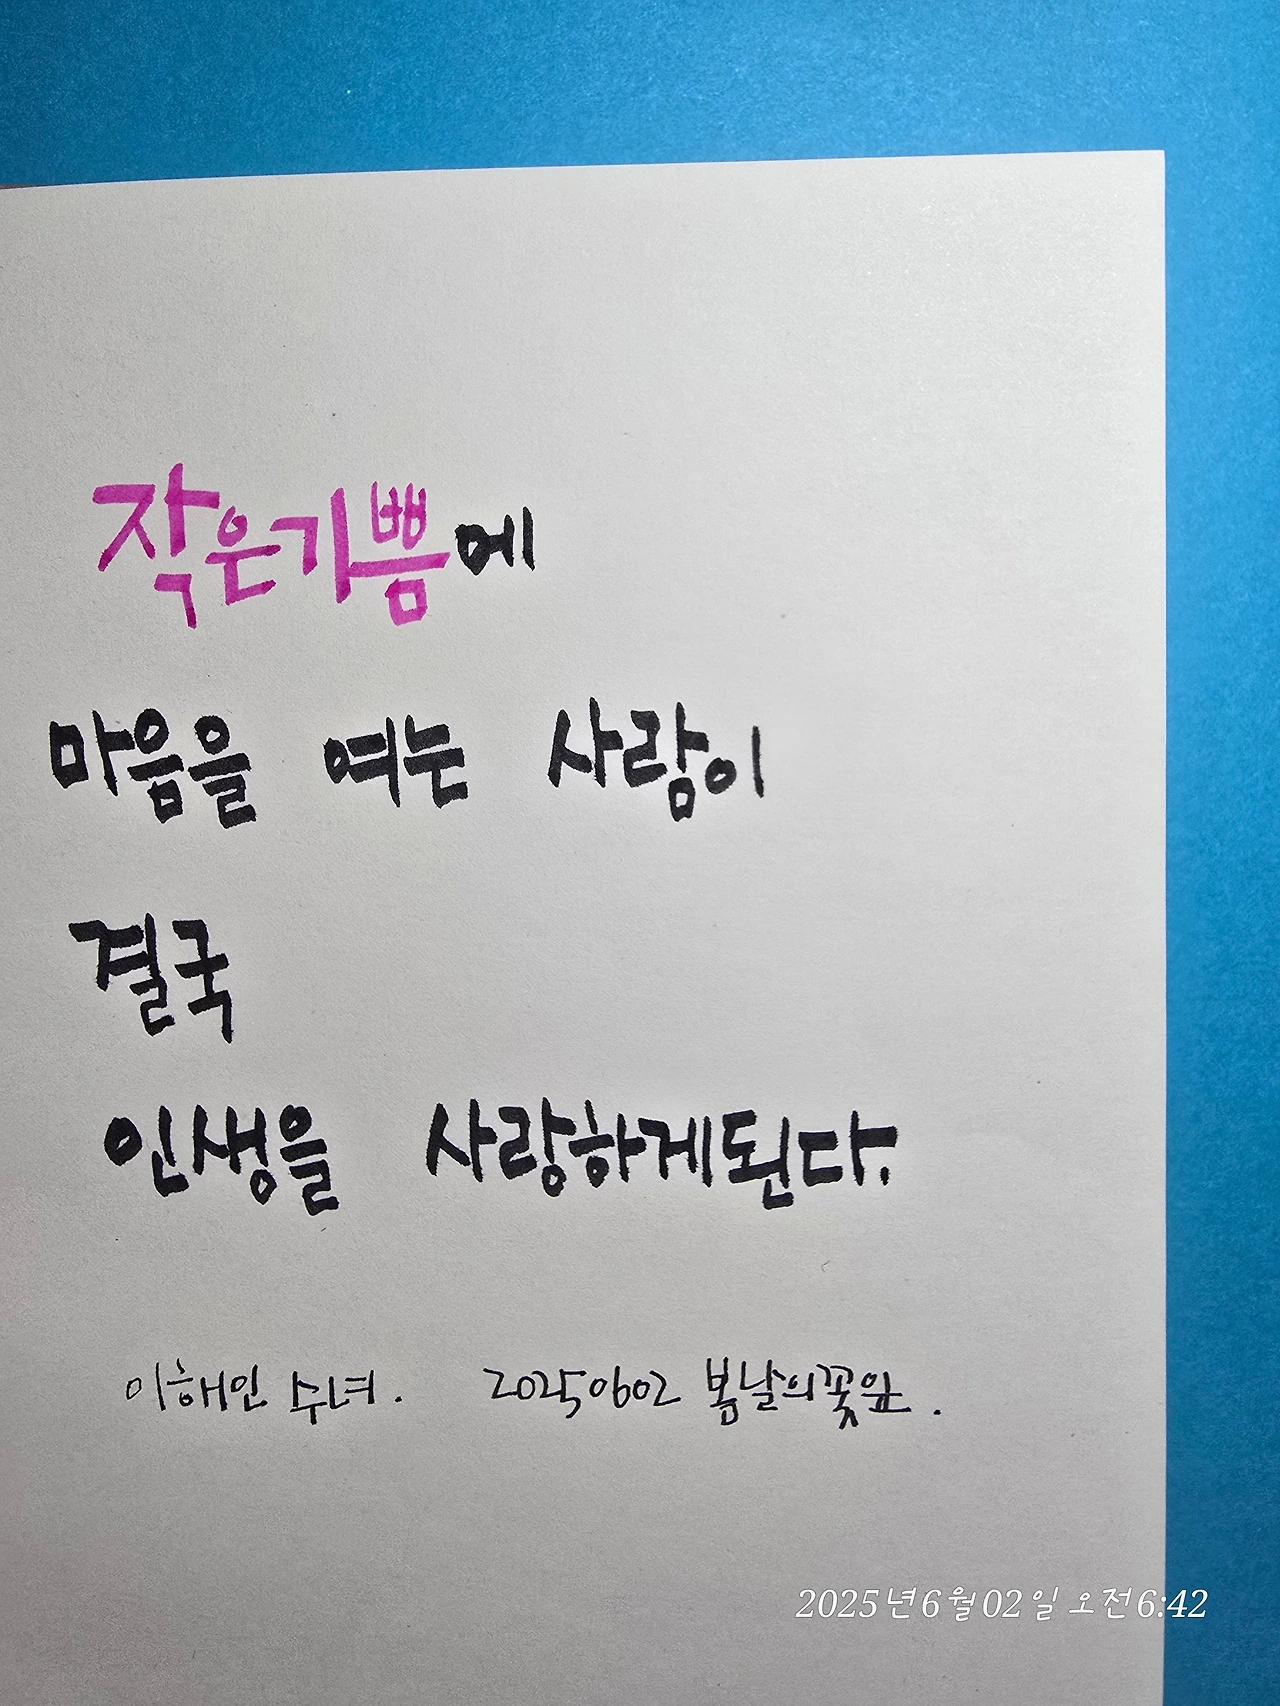 작은기쁨에
마음을 여는 사람이
결국
인생을 사랑하게된다.
이해인 수녀. 20250602 봄날의꽃잎.
2025년6월02일 오전6:42